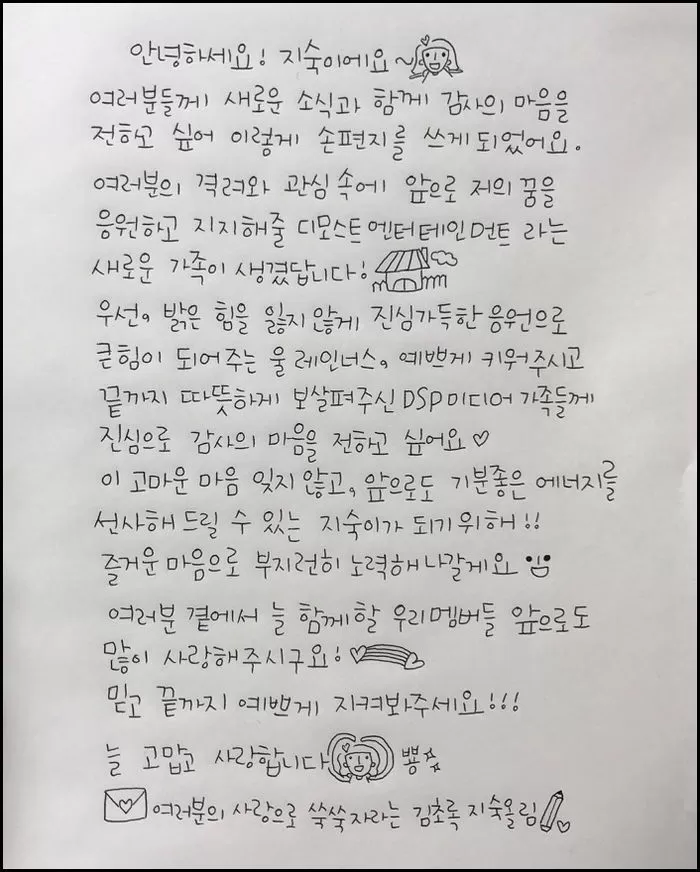 안녕하세요! 지숙이에요~
여러분들께 새로운 소식과 함께 감사의 마음을
전하고 싶어 이렇게 손편지를 쓰게되었어요.
여러분의 격려와 관심 속에 앞으로 저의 꿈을
응원하고 지지해줄 디모스트엔터테인먼트 라는
새로운 가족이 생겼답니다!
우선, 밝은 힘을 잃지않게 진심가득한 응원으로
큰힘이 되어주는 울 레인너스, 예쁘게 키워주시고
끝까지 따뜻하게 보살펴주신 DSP미디어 가족들께
진심으로 감사의 마음을 전하고 싶어요♡
이 고마운 마음 잊지 않고, 앞으로도 기분좋은 에너지를
선사해 드릴 수 있는 지숙이가 되기위해!!
즐거운 마음으로 부지런히 노력해나갈게요
여러분 곁에서 늘 함께할 우리멤버들 앞으로도
많이 사랑해주시구요!
믿고 끝까지 예쁘게 지켜봐주세요!!!
늘 고맙고 사랑합니다 뿅☆
여러분의 사랑으로 쑥쑥자라는 김초록 지숙올림